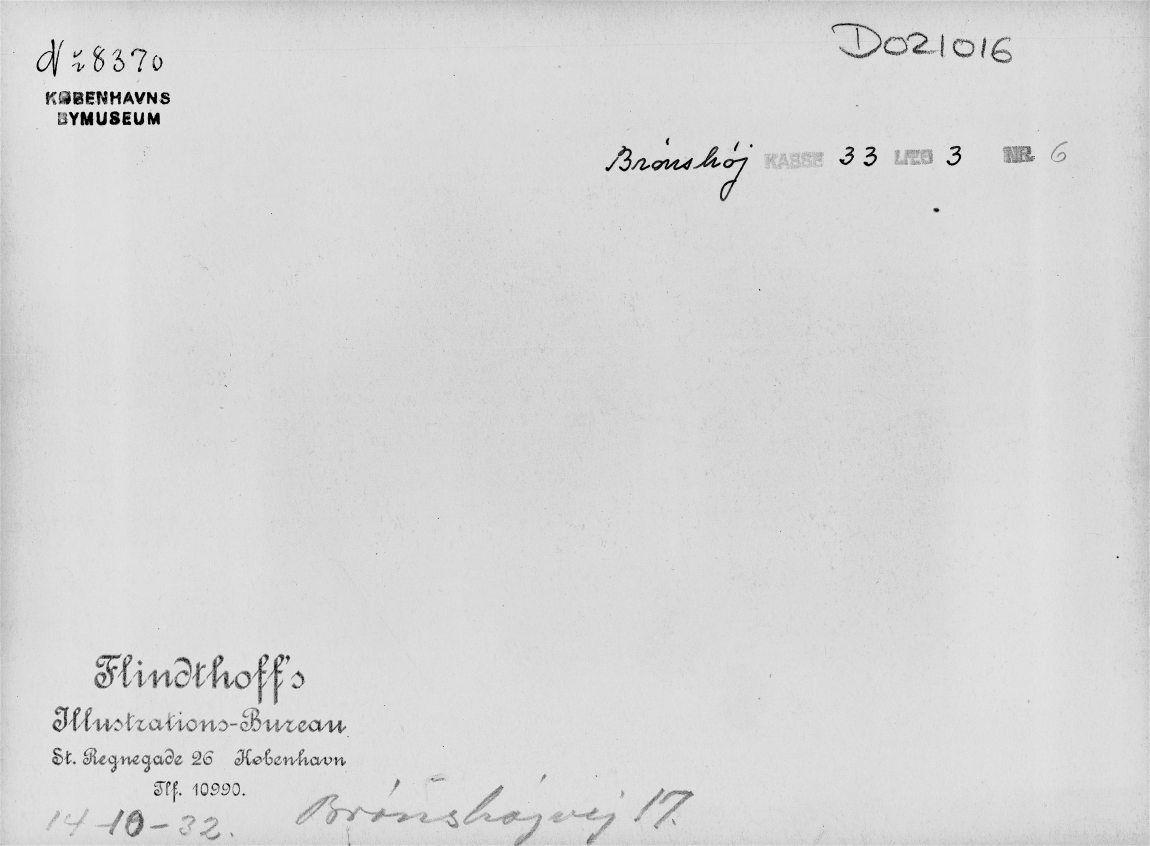 D021016
Nr 8370
KØBENHAVNS
BYMUSEUM
Brønshøj KASSE 33 LÆG 3 NR. 6
Flindthoff's
Illustrations-Bureau
St. Regnegade 26 København
Tlf. 10990.
14-10-32. Brønshøjvej 17.